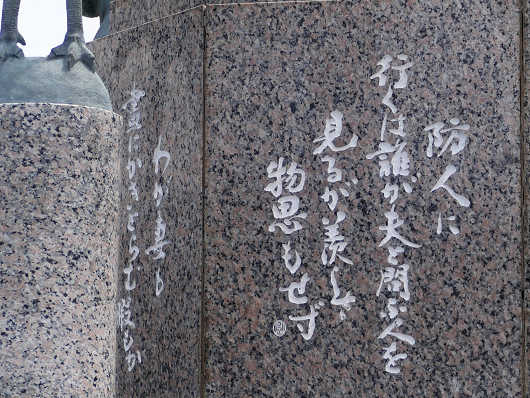 防人に
行くは誰が夫と問ふ人を
見るが羨しさ
物思もせず
わが妻も
畫にかきとらむ暇もが